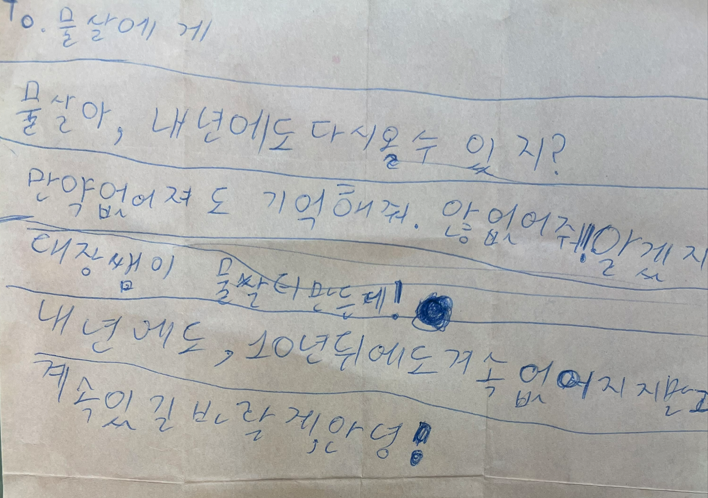 To. 물살에게
물살아, 내년에도 다시올 수 있지?
만약없어져도 기억해줘. 않없어줘!! 알겠지
대장쌤이 물쌀터만든데!
내년에도, 10년뒤에도겨속 없어지지말고
계속있길 바랄게,안녕!